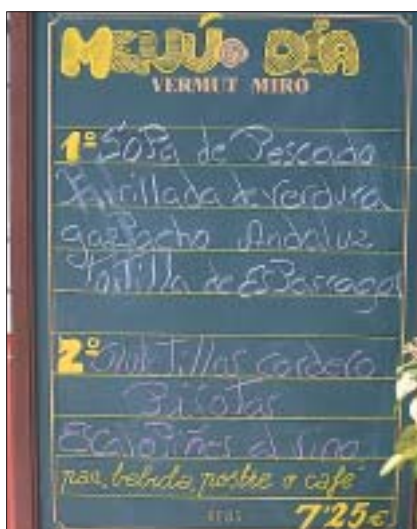 MENÚ DÍA
VERMUT MIRO
1º Sopa de Pescado
Parrillada de verdura
gazpacho Andaluz
Tortilla de Esparragos
2º Chuletillas cordero
Escalopines al vino
pan, bebida, postre o café
REUS
7'25€